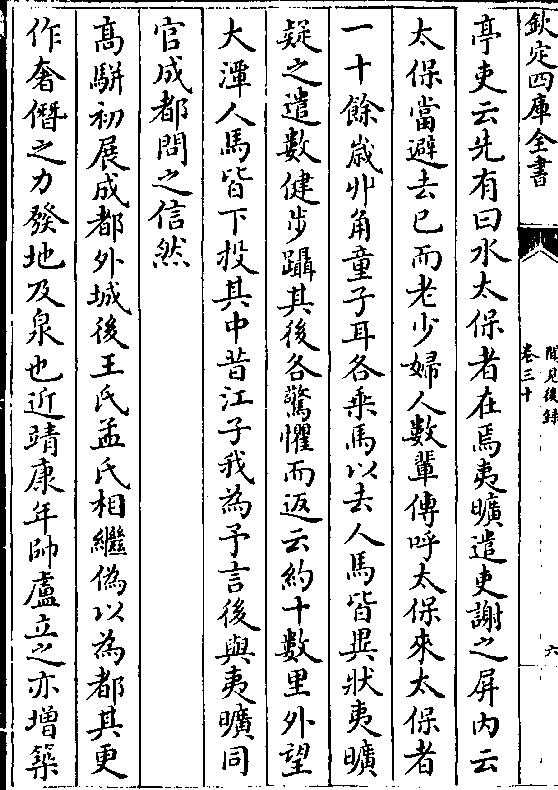 欽定四庫全書
聞見後錄
卷三十
六
亭吏云先有曰水太保者在焉夷曠遣吏謝之屏内云
太保當避去已而老少婦人數輩傳呼太保來太保者
一十餘嵗丱角童子耳各乗馬以去人馬皆異狀夷曠
疑之遣數健步躡其後各驚懼而返云約十數里外望
大潭人馬皆下投其中昔江子我為予言後與夷曠同
官成都問之信然
髙駢初展成都外城後王氏孟氏相繼偽以為都其更
作奢僭之力發地及泉也近靖康年帥盧立之亦增築